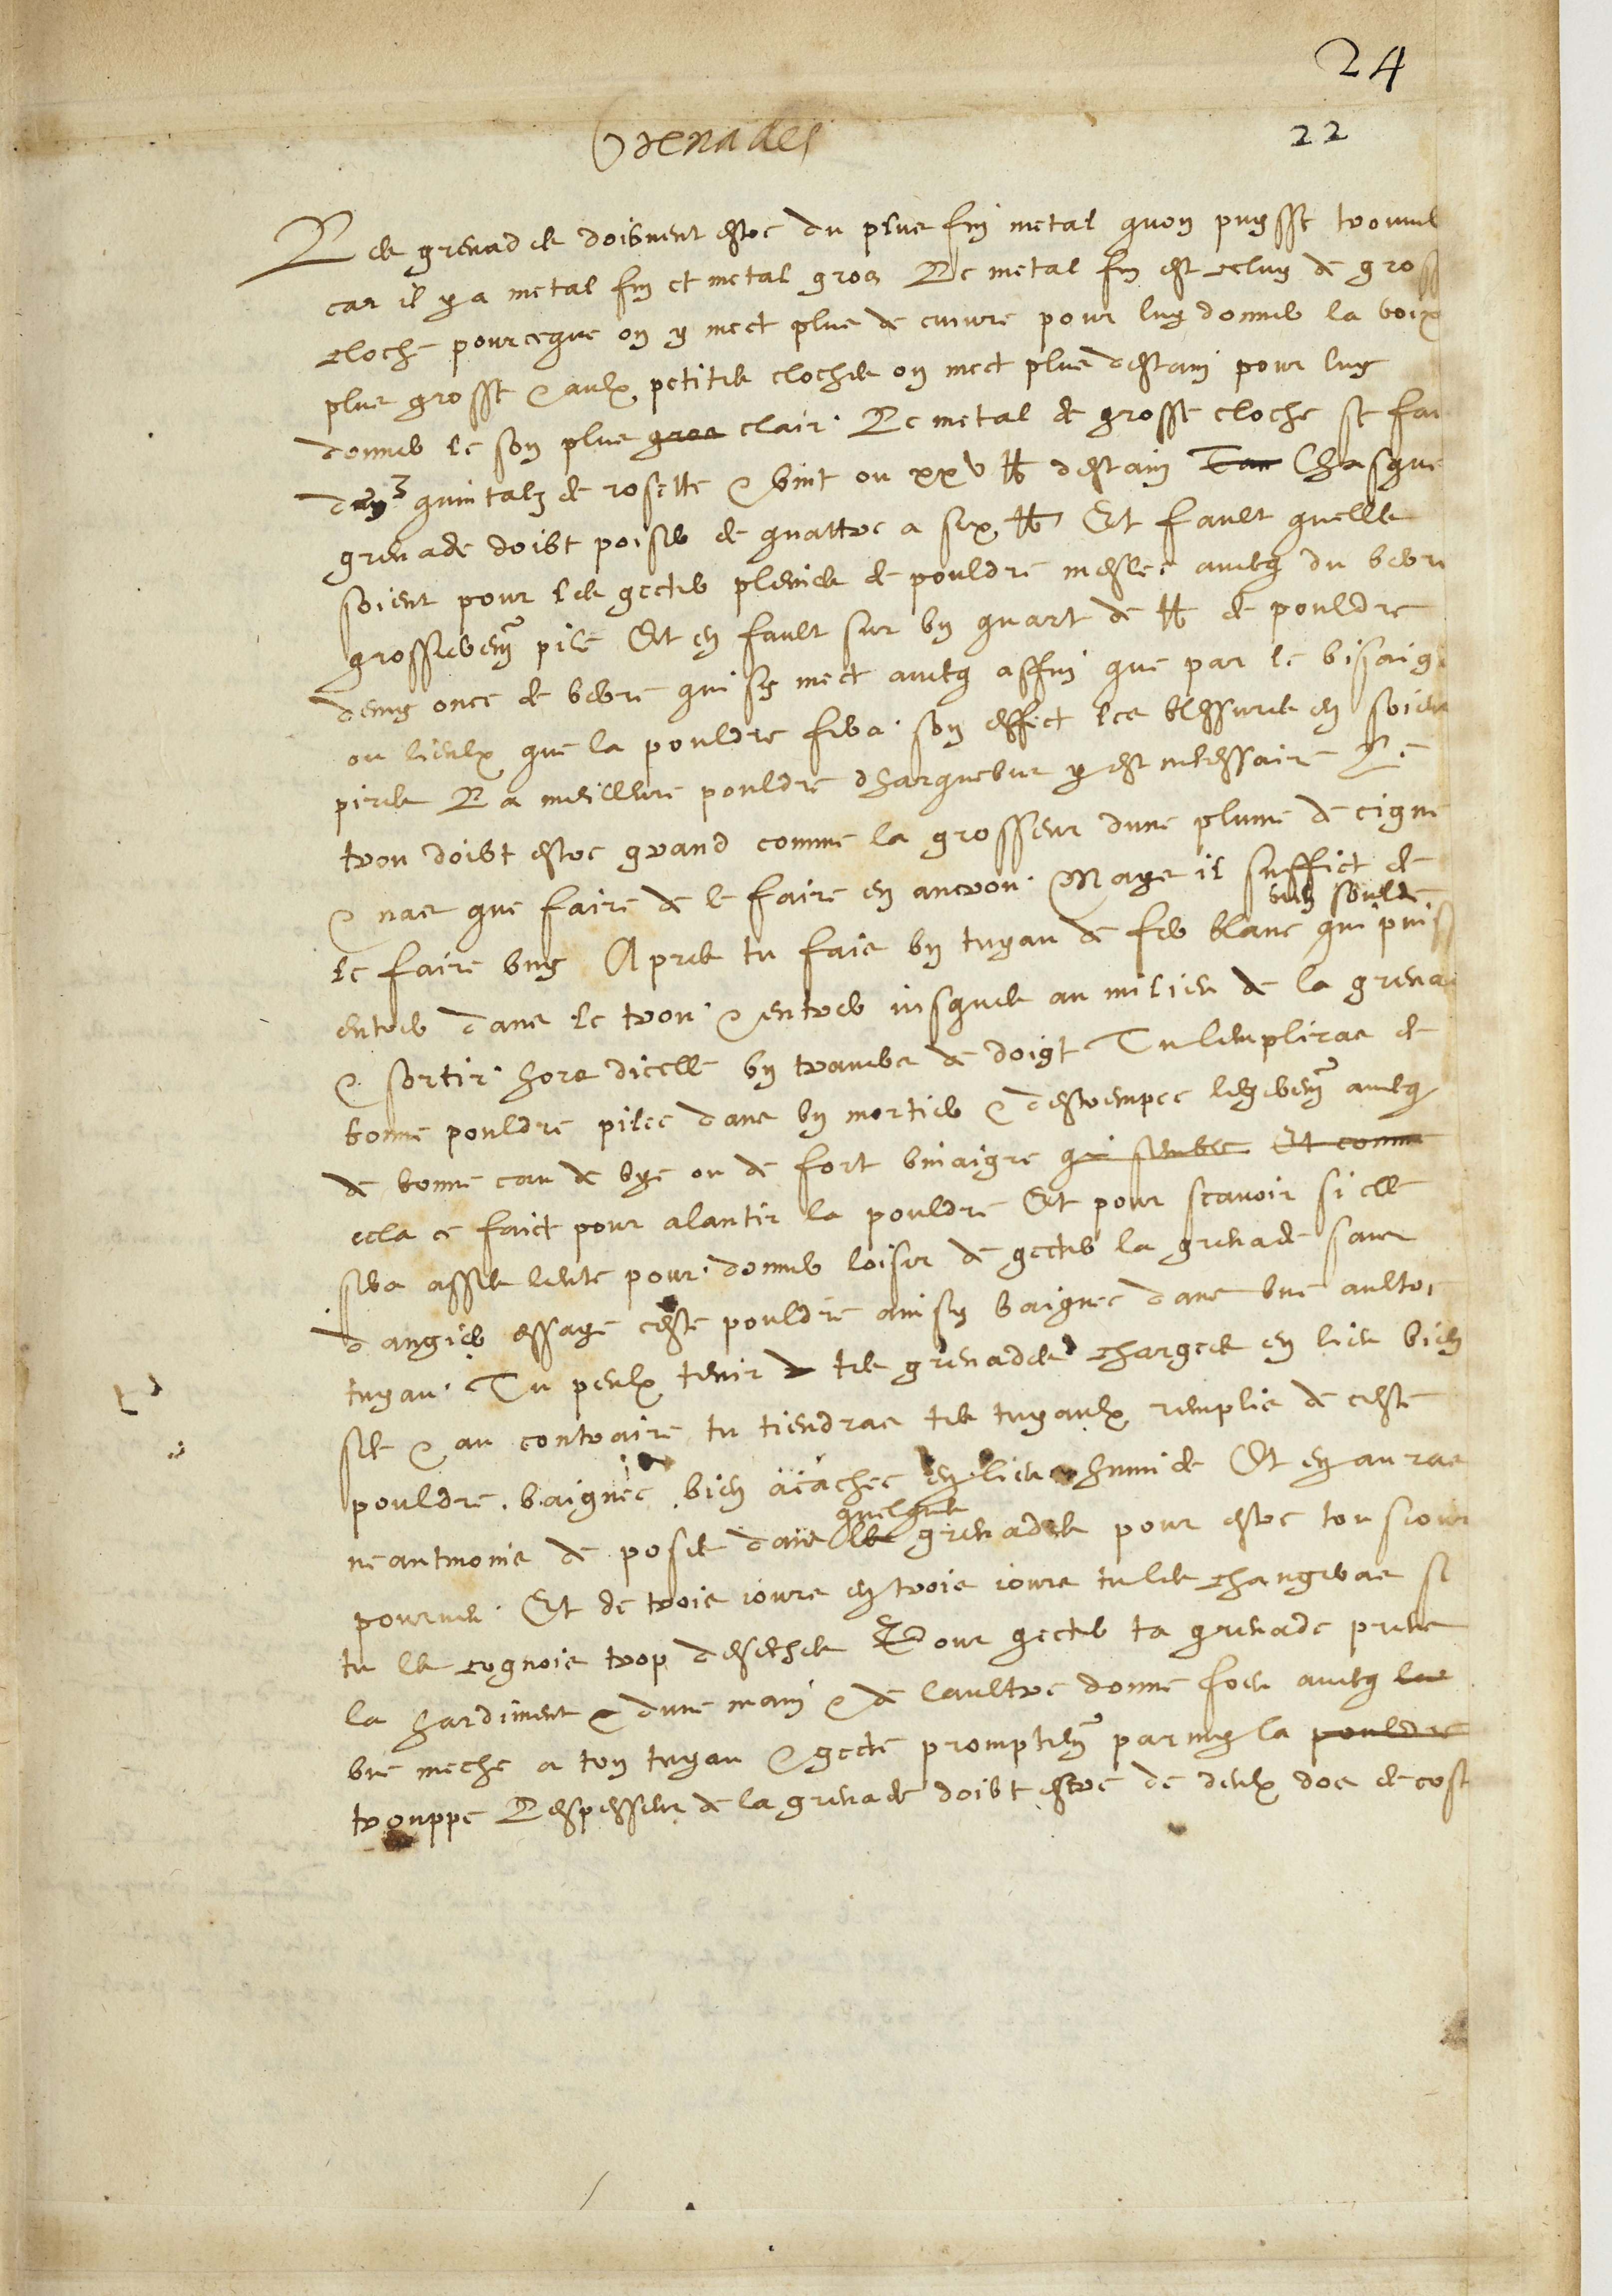 24
22
Grenades
Les grenades doibvent estre du plus fin metal quon puysse trouver
car il y a metal fin et metal gros Le metal fin est celuy de gross
cloche pourceque on y mect plus de cuivre pour luy donner la voix
plus grosse & aulx petites cloches on mect plus destain pour luy
donner le son plus gros clair Le metal de grosse cloche se fai
de quintalz de rosette & vint ou xxv lb destain Chasque
grenade doibt poiser de quattre a six lb Et fault quelles
soient pour les gecter pleines de pouldre meslee avecq du verre
grossierem pile Et en fault sur un quart de lb de pouldre
demy once de verre qui sy mect avecq affin que par le bisaig
ou lieulx que la pouldre fera son effect les blessures en soient
pires La meilleure pouldre dharquebus y est necessaire Le
trou doibt estre grand comme la grosseur dune plume de cigne
& nas que faire de le faire en ancrou Mays il suffict de
bien soulde
le faire uny Apres tu fais un tuyau de fer blanc qui puiss
entrer dans le trou & entrer jusques au milieu de la grena
& sortir hors dicelle un travers de doigt Tu lempliras de
bonne pouldre pilee dans un mortier & destrempee legerem avecq
de bonne eau de vye ou de fort vinaigre Et comme
cela ce faict pour alantir la pouldre Et pour scavoir si elle
sera asses lente pour donner loisir de gecter la grenade sans
dangier essaye ceste pouldre ainsy baignee dans une aultre
tuyau Tu peulx tenir tes grenades chargees en lieu bien
sec & au contraire tu tiendras tes tuyaulx remplis de ceste
pouldre baignee bien atachee en lieu humide Et en auras
quelques
neantmoins de poses dans les grenades pour estre tousjour
pourveu Et de trois jours en trois jours tu les changeras si
tu les cognois trop deseches Pour gecter ta grenade prens
la hardiment & dune main & de laultre donne foeu avecq
une meche a ton tuyau & gecte promptem parmy la pouldre
trouppe Lespesseur de la grenade doibt estre de deulx dos de cost